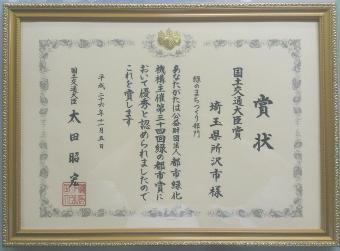 賞状
国土交通大臣賞
埼玉県所沢市様
緑のまちづくり部門
あなたがたは公益財団法人都市緑化
機構主催第三十四回緑の都市賞に
おいて優秀と認められましたので
これを賞します
平成二十六年十一月五日
国土交通大臣
太田昭宏